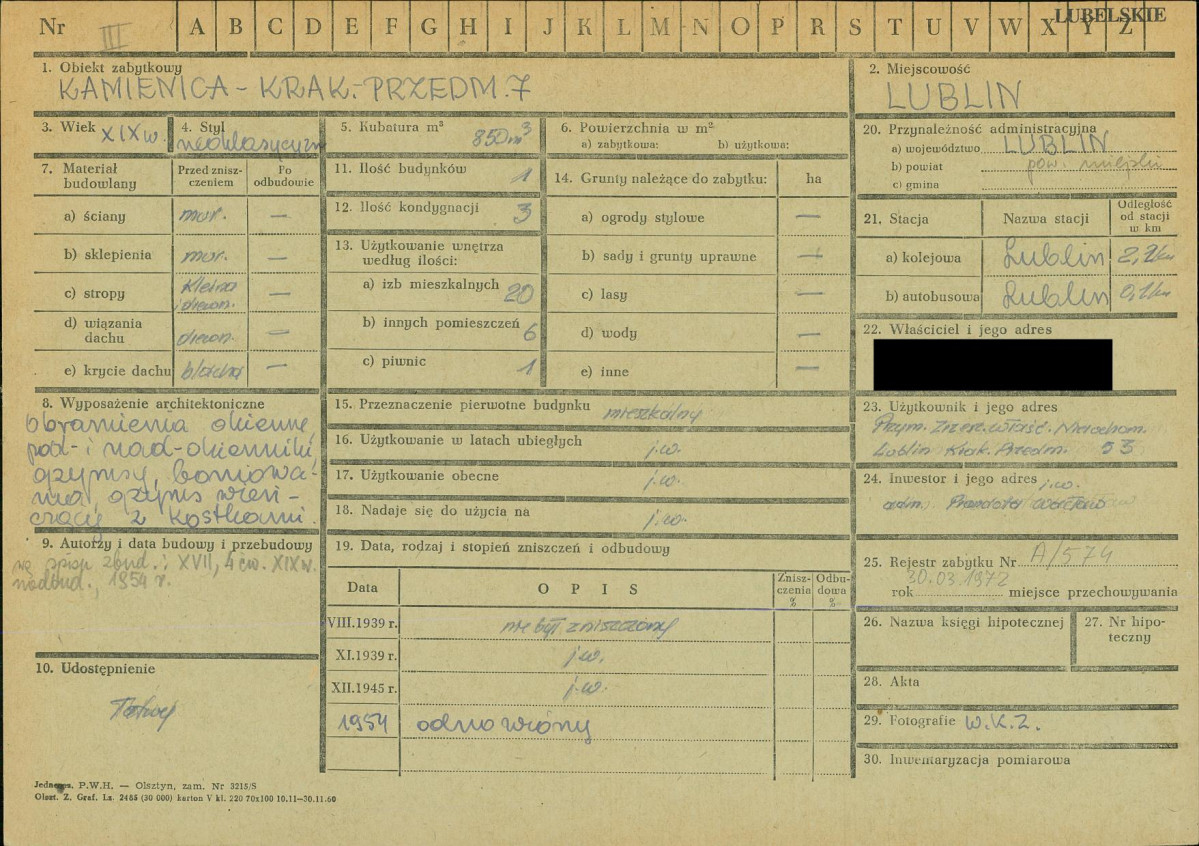 Nr III A B C D E F G H I J K L M N O P R S T U V W X Y Z LUBELSKIE
1. Obiekt zabytkowy
KAMIENICA - KRAK.-PRZEDM. 7
2. Miejscowość
LUBLIN
3. Wiek XIX w.
4. Styl
neoklasycyzm
5. Kubatura m³ 850 m³
6. Powierzchnia w m²
a) zabytkowa: b) użytkowa:
20. Przynależność administracyjna
a) województwo LUBLIN
b) powiat pow. miejski
c) gmina
7. Materiał budowlany
Przed zniszczeniem
Po odbudowie
a) ściany mur. —
b) sklepienia mur. —
c) stropy Kleina i drewn. —
d) wiązania dachu drewn. —
e) krycie dachu blacha —
11. Ilość budynków 1
12. Ilość kondygnacji 3
13. Użytkowanie wnętrza
według ilości:
a) izb mieszkalnych 20
b) innych pomieszczeń 6
c) piwnic 1
14. Grunty należące do zabytku: ha
a) ogrody stylowe —
b) sady i grunty uprawne —
c) lasy —
d) wody —
e) inne —
21. Stacja Nazwa stacji Odległość od stacji w km
a) kolejowa Lublin 2,2 km
b) autobusowa Lublin 0,1 km
22. Właściciel i jego adres
8. Wyposażenie architektoniczne
obramienia okienne
pod- i nad-okienniki
gzymsy, boniowa-
nia, gzyms wień-
czący z kostkami.
15. Przeznaczenie pierwotne budynku mieszkalny
16. Użytkowanie w latach ubiegłych j.w.
17. Użytkowanie obecne j.w.
18. Nadaje się do użycia na j.w.
23. Użytkownik i jego adres
Przym. Zrzesz. Właśc. Nieruchom.
Lublin Krak. Przedm. 53
24. Inwestor i jego adres j.w.
adm.
9. Autorzy i data budowy i przebudowy
wg spisu zbud.: XVII, 4 ćw. XIX w.
nadbud., 1954 r.
19. Data, rodzaj i stopień zniszczeń i odbudowy
Data OPIS Zniszczenia % Odbudowa %
VIII.1939 r. nie był zniszczony
XI.1939 r. j.w.
XII.1945 r. j.w.
1954 odnowiony
25. Rejestr zabytku Nr A/574
30.03.1972
rok miejsce przechowywania
26. Nazwa księgi hipotecznej
27. Nr hipoteczny
10. Udostępnienie
28. Akta
29. Fotografie W.K.Z.
30. Inwentaryzacja pomiarowa
P.W.H. — Olsztyn, zam. Nr 3215/S
Olszt. Z. Graf. Lz. 2485 (30 000) karton V kl. 220 70x100 10.11—30.11.60